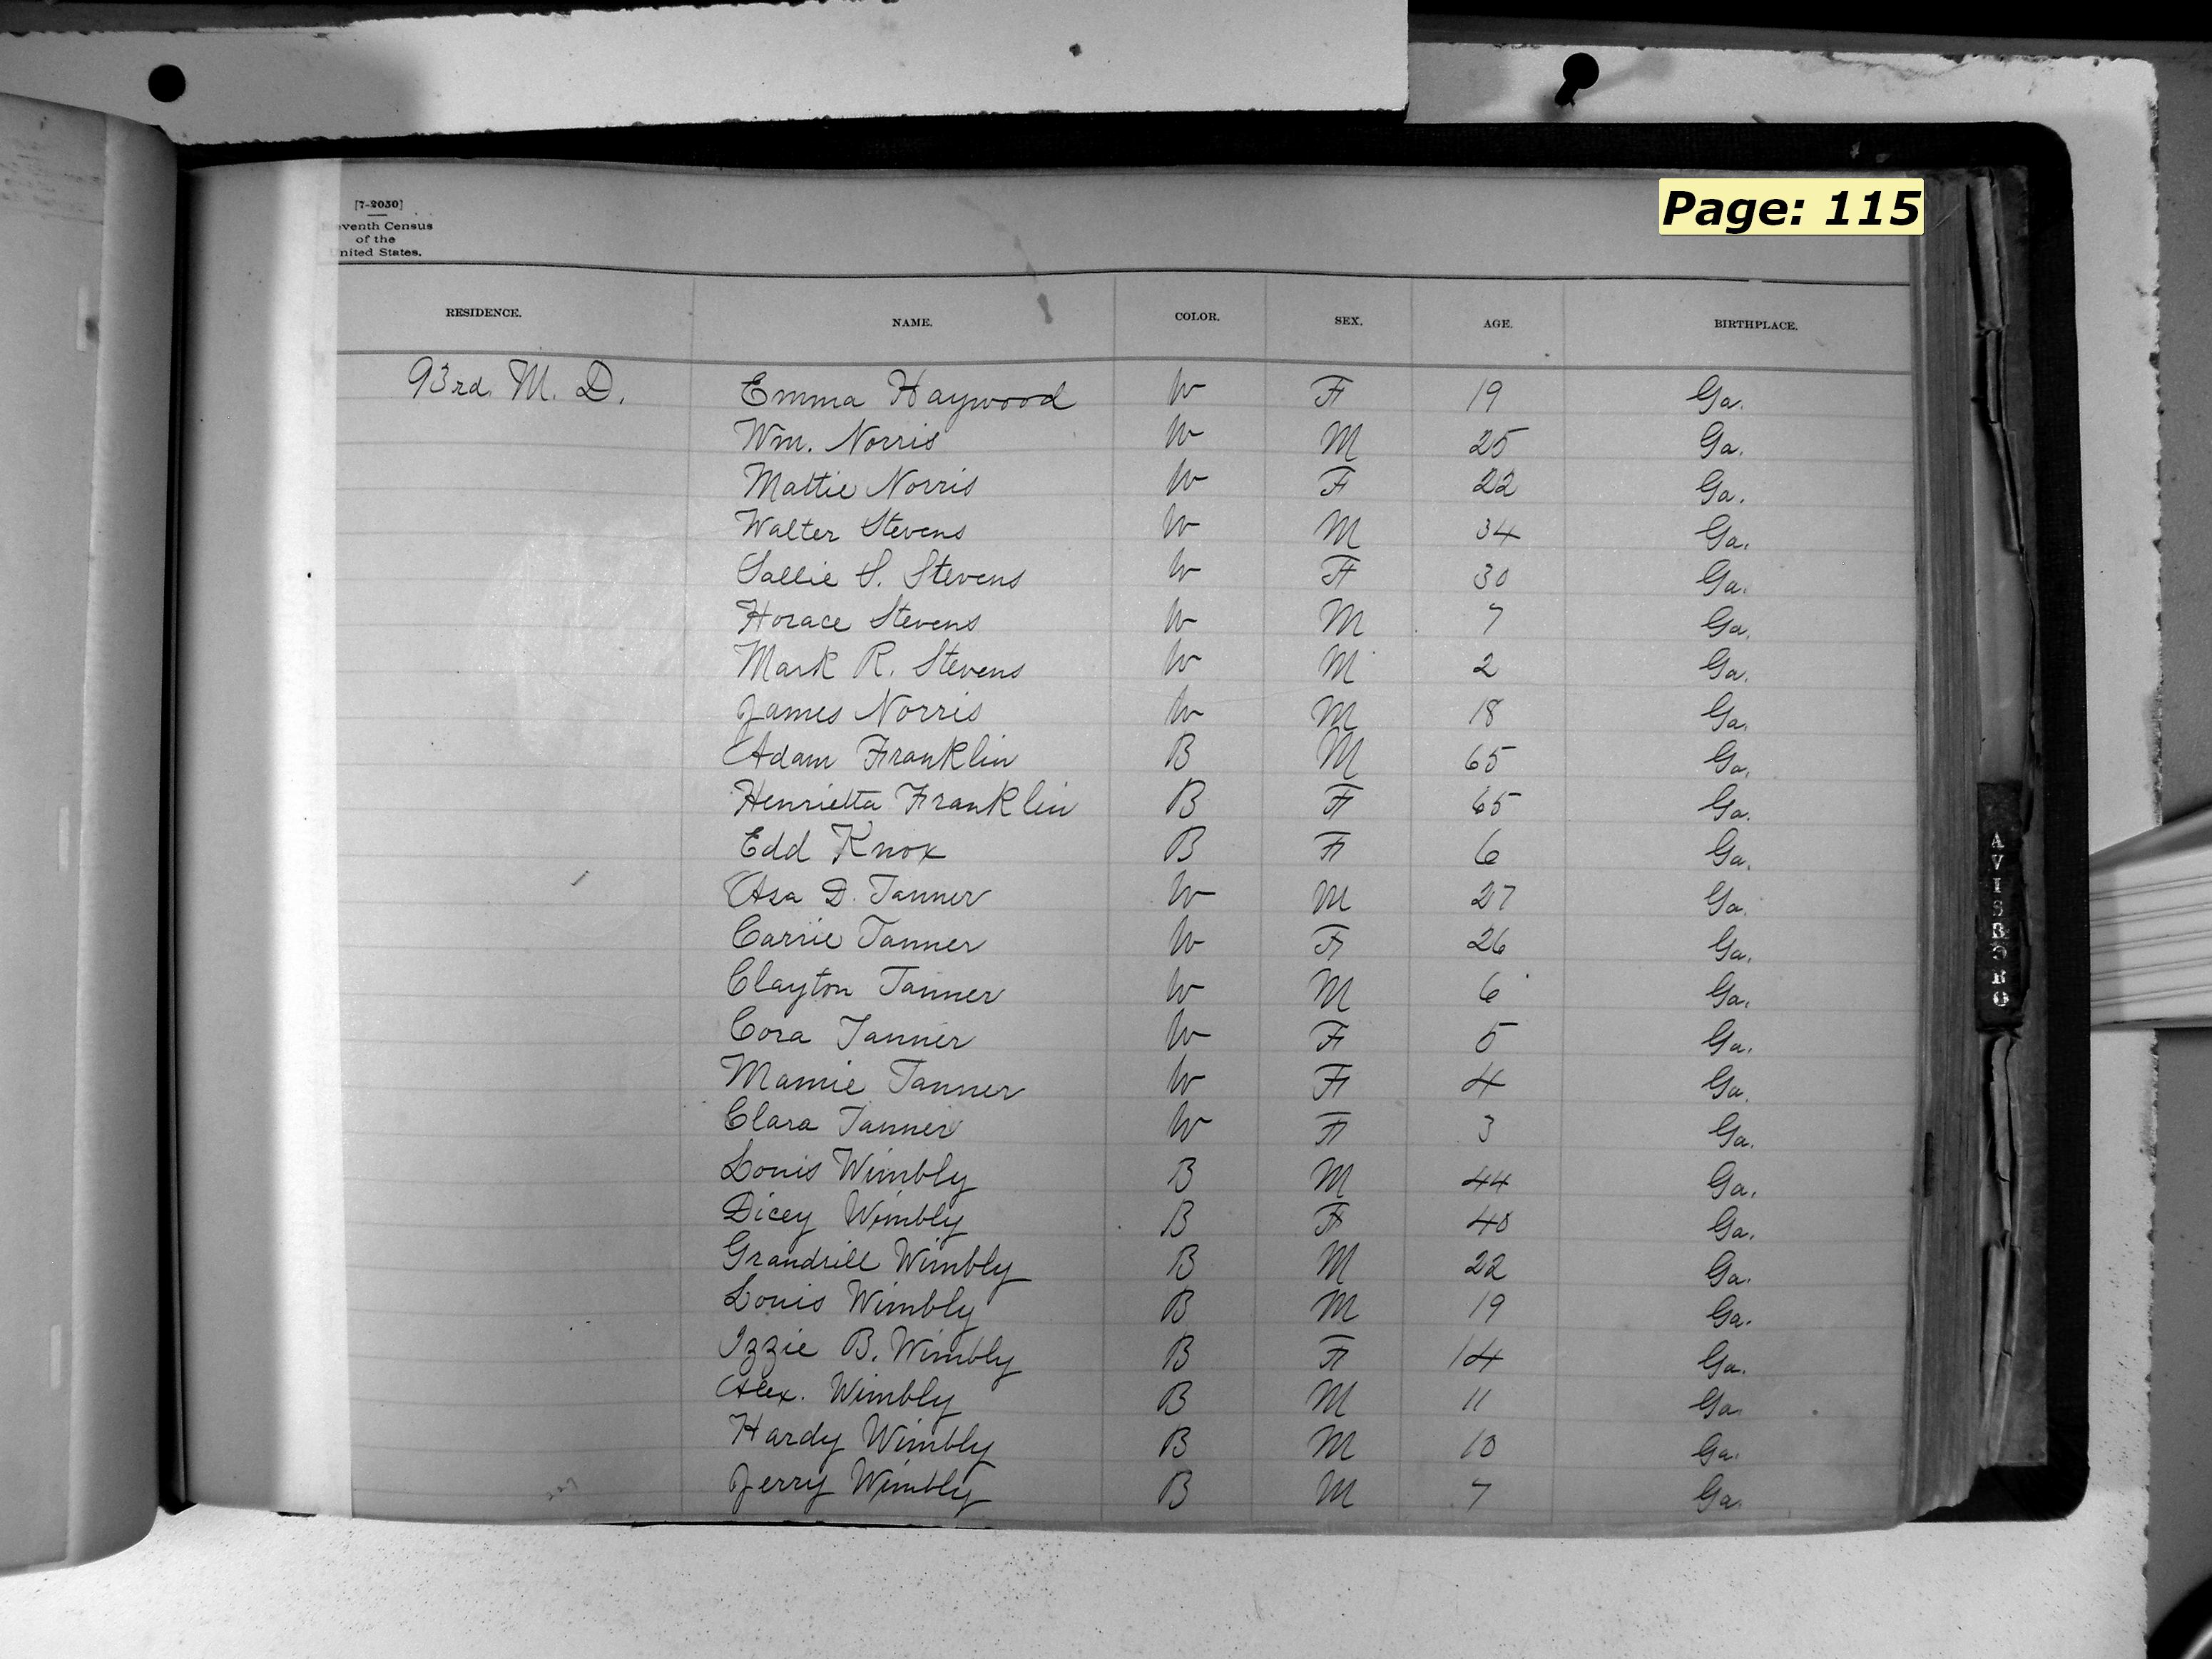 Page: 115
[7-2030]
eventh Census
of the
United States.
RESIDENCE. NAME. COLOR. SEX. AGE. BIRTHPLACE.
93rd. M. D. Emma Haywood W F 19 Ga.
Wm. Norris W M 25 Ga.
Mattie Norris W F 22 Ga.
Walter Stevens W M 34 Ga.
Sallie S. Stevens W F 30 Ga.
Horace Stevens W M 7 Ga.
Mark R. Stevens W M 2 Ga.
James Norris W M 18 Ga.
Adam Franklin B M 65 Ga.
Henrietta Franklin B F 65 Ga.
Edd Knox B F 6 Ga.
Asa D. Tanner W M 27 Ga.
Carrie Tanner W F 26 Ga.
Clayton Tanner W M 6 Ga.
Cora Tanner W F 5 Ga.
Mamie Tanner W F 4 Ga.
Clara Tanner W F 3 Ga.
Louis Wimbly B M 44 Ga.
Dicey Wimbly B F 40 Ga.
Grandrill Wimbly B M 22 Ga.
Louis Wimbly B M 19 Ga.
Izzie B. Wimbly B F 14 Ga.
Alex. Wimbly B M 11 Ga.
Hardy Wimbly B M 10 Ga.
Jerry Wimbly B M 7 Ga.
AVISBORO